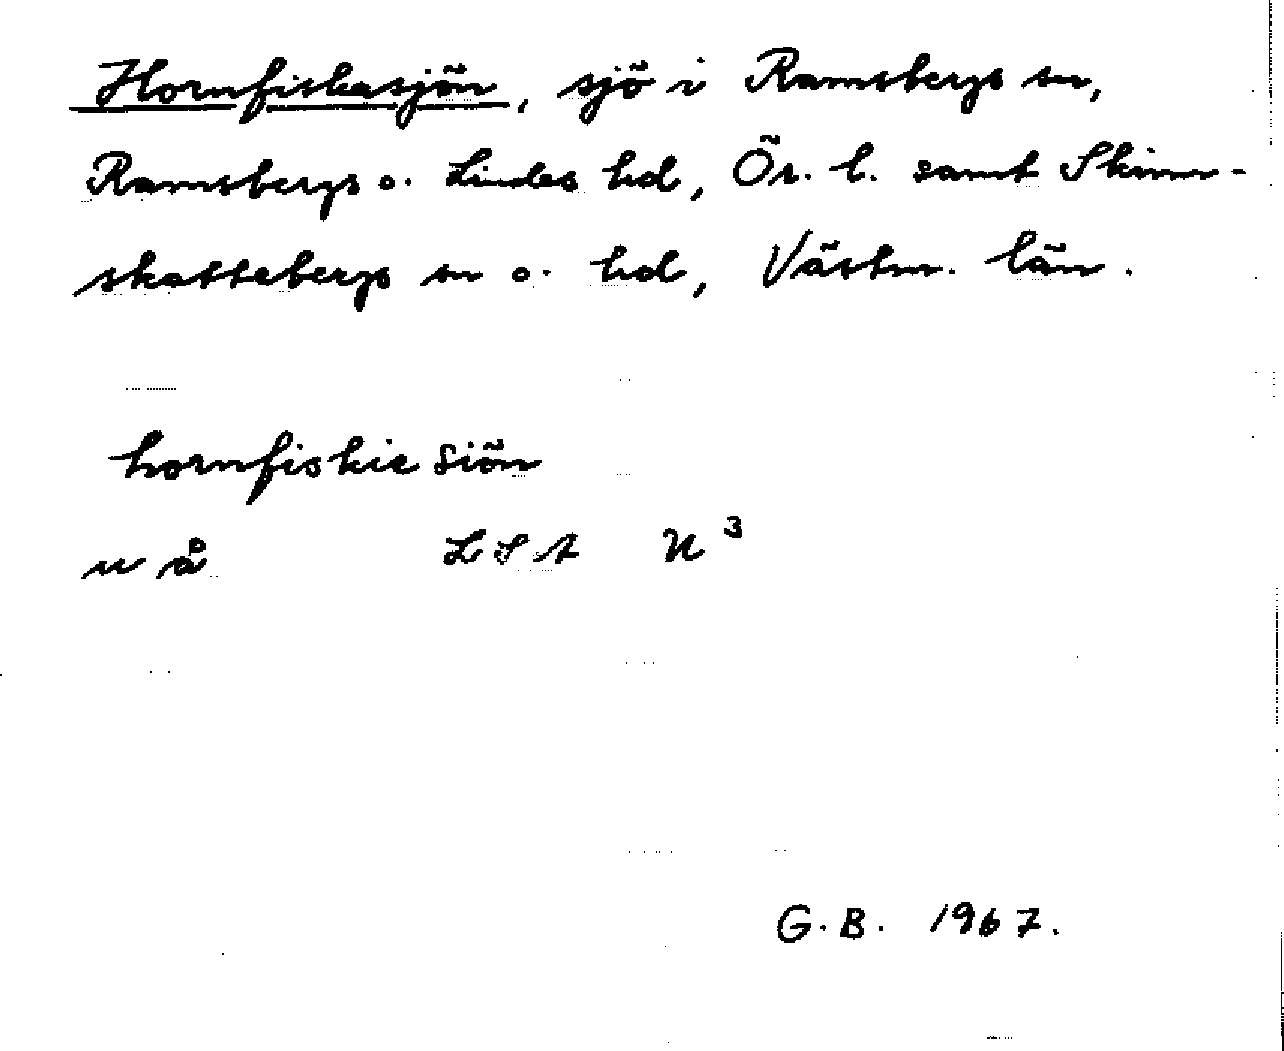 Hornfiskasjön, sjö i Ramsbergs sn,
Ramsbergs o. Lindes hd, Ör. l. samt Skinn-
skattebergs sn o. hd, Västm. län.
hornfiskie siön
u å LSA U³
G.B. 1967.